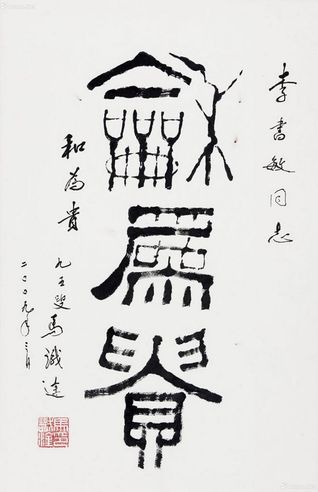 李書敏同志
龢為貴
和為貴
九五叟馬識途
二〇〇九年三月